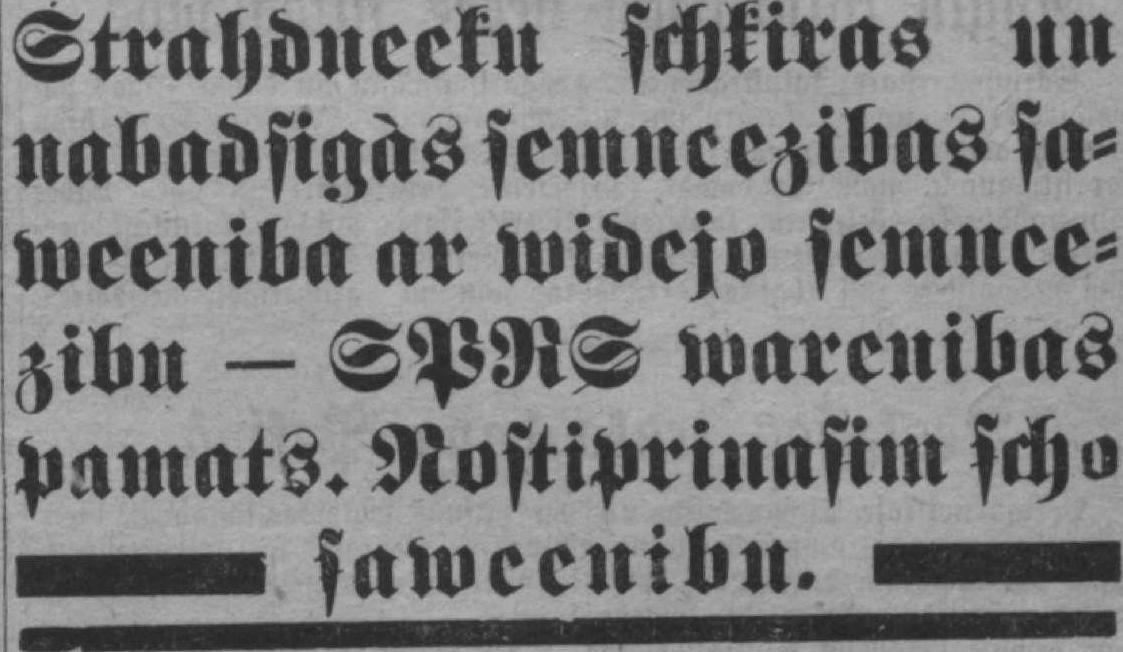 Strahdneeku ſchkiras un
nabadſigàs ſemneezibas ſa⸗
weeniba ar widejo ſemnee⸗
zibu — SPRS warenibas
pamats. Noſtiprinaſim ſcho
ſaweenibu.